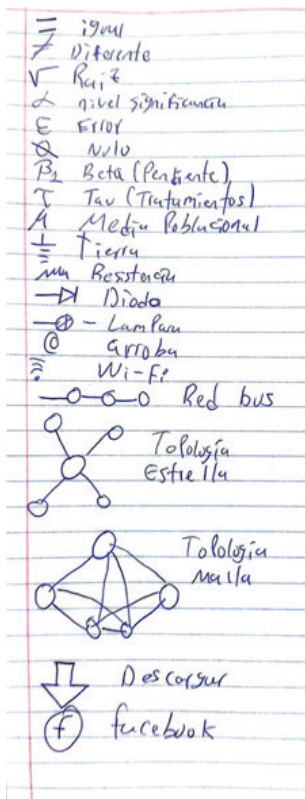 = igual
≠ Diferente
√ Raiz
α nivel significancia
ε Error
Nulo
β₁ Beta (Pendiente)
τ Tau (Tratamientos)
μ Media Poblacional
Tierra
Resistencia
Diodo
- Lampara
@ arroba
Wi-Fi
Red bus
Topologia
Estrella
Topologia
Malla
Descargar
f facebook